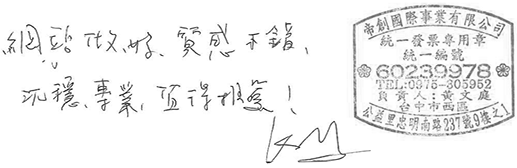 網站做的好、質感不錯、
沉穩、專業、值得推薦！
KM
帝創國際事業有限公司
統一發票專用章
統一編號
60239978
TEL:0975-305952
負責人:黃文庭
台中市西區
公益里忠明南路237號9樓之1